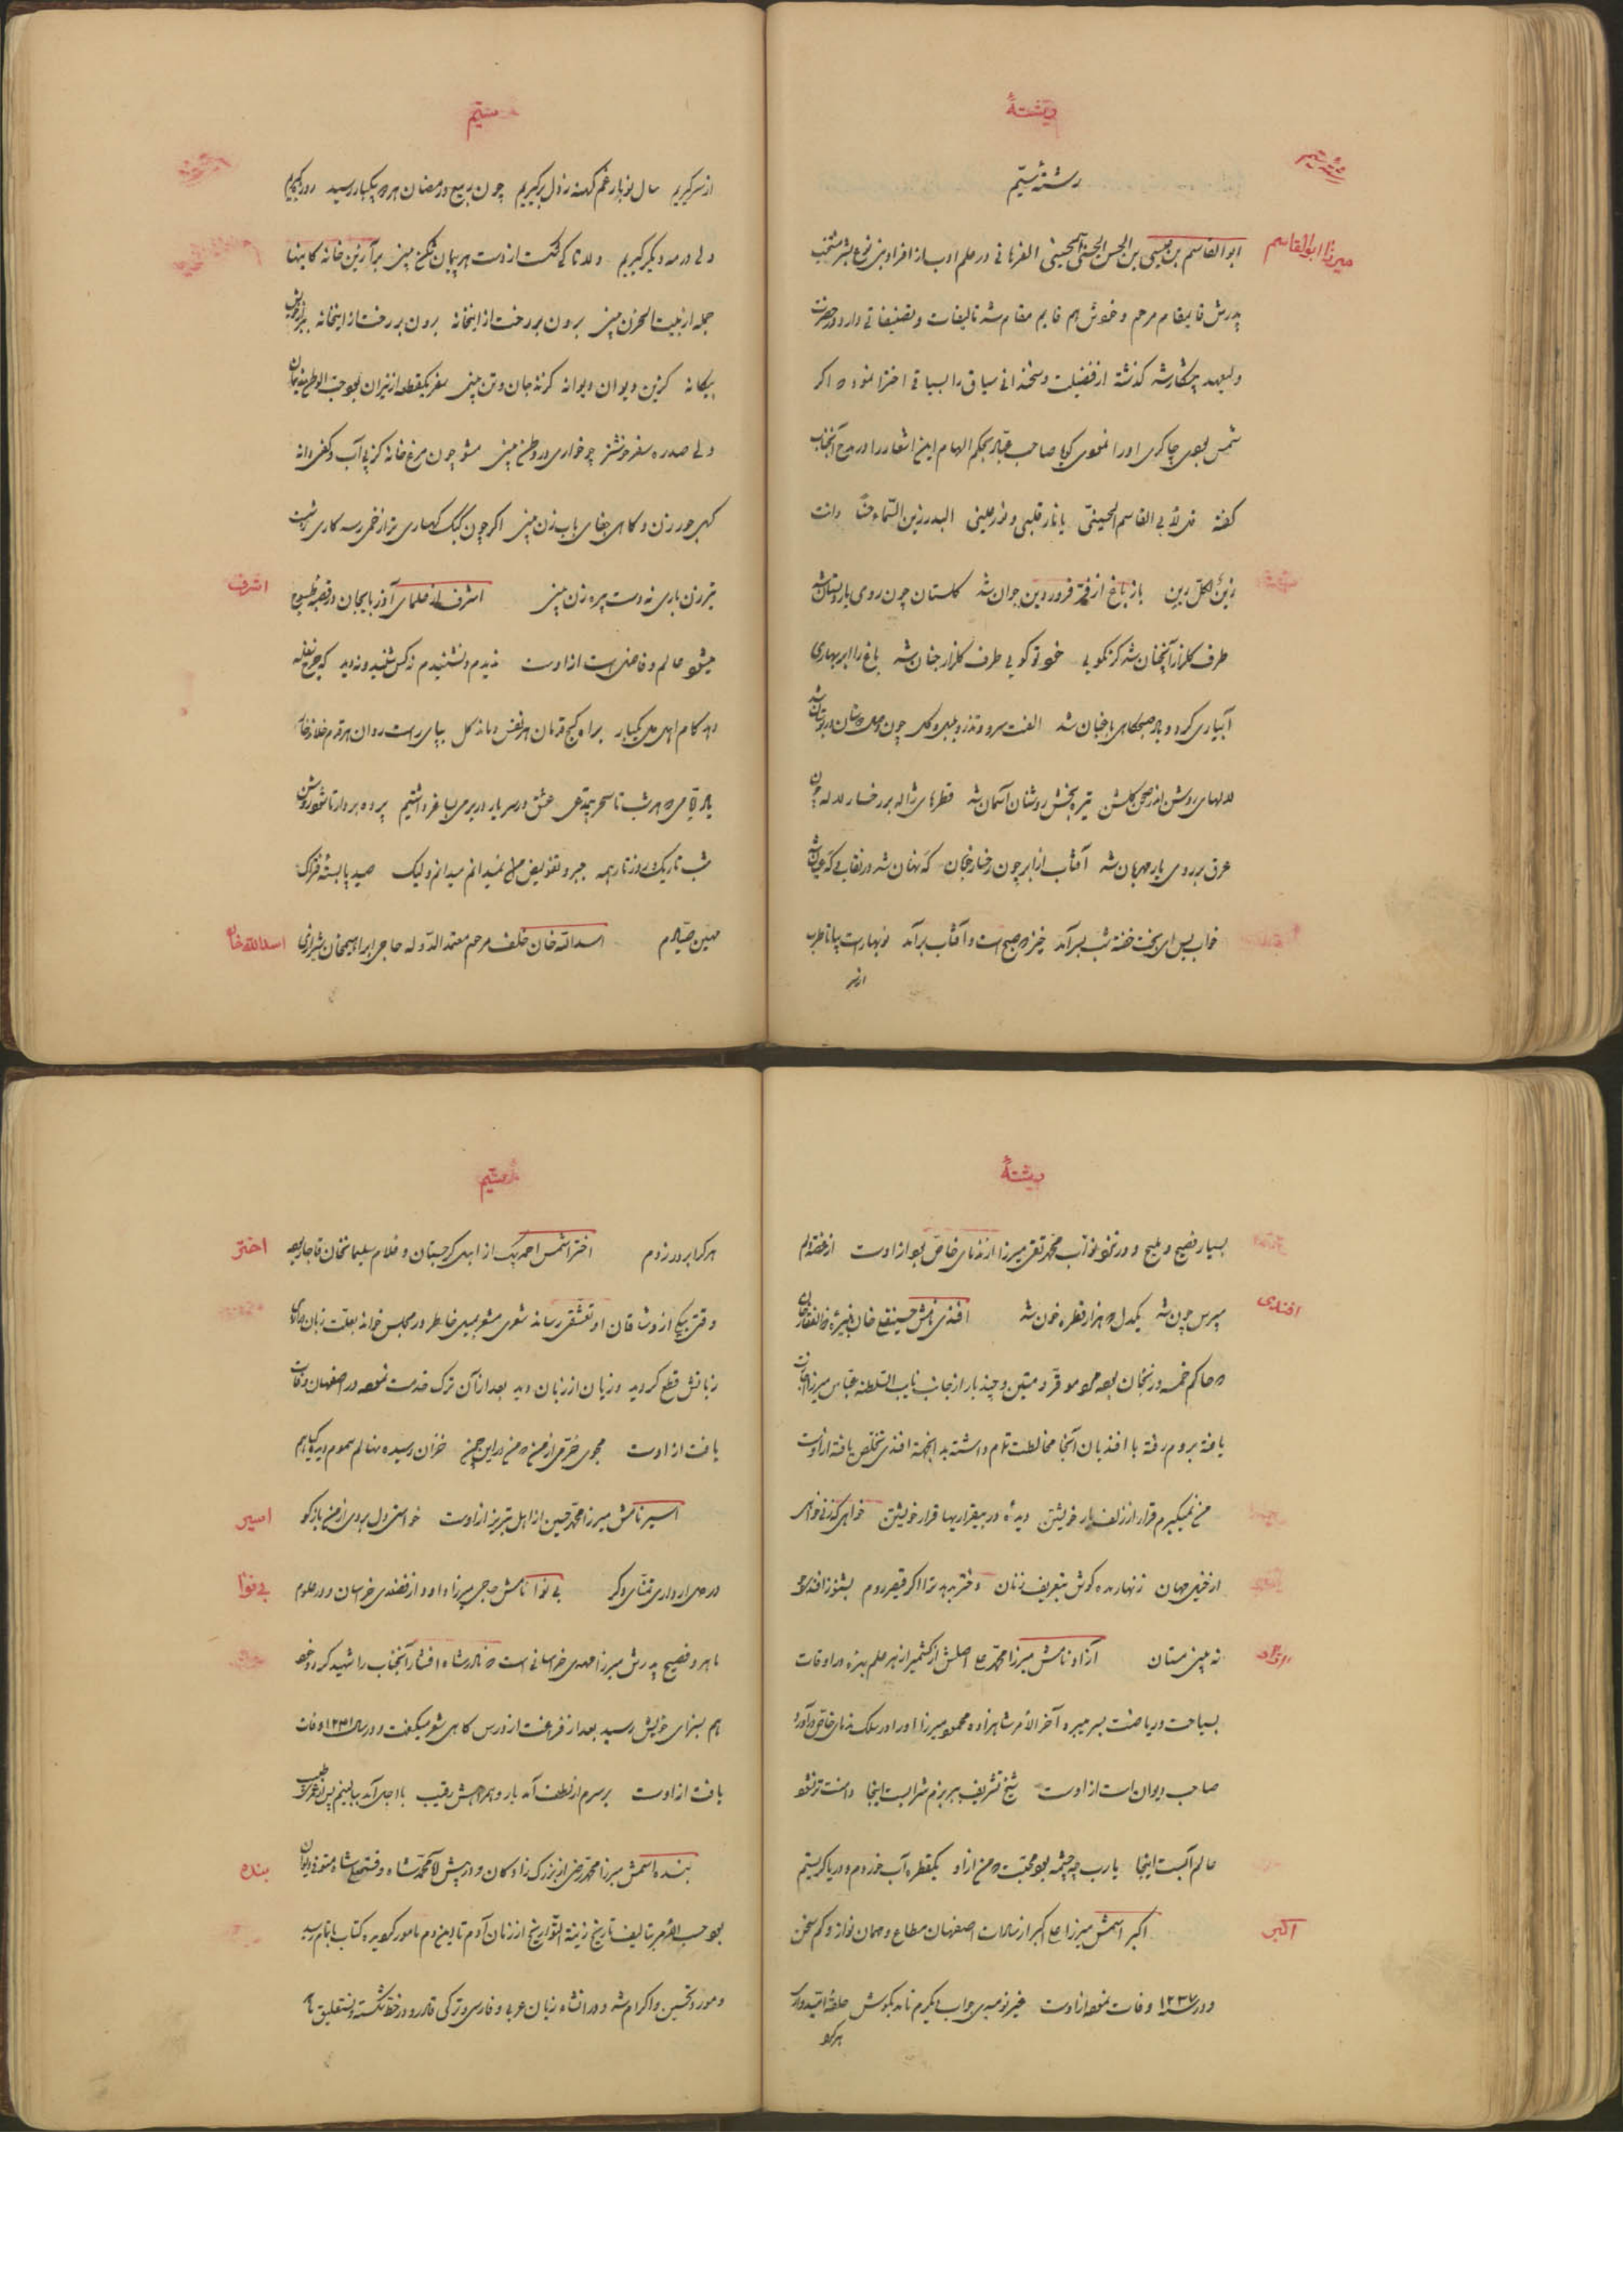 رشتهٔ
رشته ششم
میرزا ابوالقاسم
ابوالقاسم بن عیسی بن الحسن الحسنی الحسینی الفراهانی در علم ادب از افراد بنی نوع بشر منتخب
پدرش قایمقام مرحوم و خودش هم قایم مقام شد تالیفات و تصنیفاتی دارد در حضرت
ولیعهد پیشکار شد گذشته از فضیلت و سخندانی سیاق را بسیاقی اختراع نموده که اگر
شمس بودی چاکری او را نمودی گویا صاحب عباد بحکم الهام این اشعار را در مدح آنجناب
گفته قل لأبی القاسم الحسینی یا نار قلبی و نور عینی البدر زین السماء حقا و انت
زین لکل زین باز باغ از فر فروردین جوان شد گلستان چون روی یار دلستان شد
طرف گلزار آنچنان شد کز نکویی خود تو گویی طرف گلزار جنان شد باغ را ابر بهاری
آبیاری کرد و باد صبحگاهی باغبان شد الفت سرو و تذرو و بلبل و گل چون وصل دوستان در بوستان شد
لالهای روشن اندر صحن گلشن تیره بخش روشنان آسمان شد قطرهای ژاله بر رخسار لاله چون
عرق بر روی یار مهربان شد آفتاب از ابر چون رخسار خوبان گه نهان شد در نقاب و گه عیان شد
خواب بس ای بخت خفته شب بسر آمد خیز که صبح است و آفتاب برآمد نوبهارست بیا تا طرب
از سر
ششم
از سر گیریم سال نو بار غم کهنه ز دل برگیریم چون ربیع و رمضان هر دو بیکبار رسید روزکی
ولی در مه دیگر گیریم دلا تا کی شکست از دست هر پیمان شکن بینی برآ زین خانه کاینها
جمله از بیت الحزن بینی برون بر رخت از اینخانه برون بر رخت از اینخانه
بیگانه کزین دیوان دیوانه گزند جان و تن بینی سفر یکقطعه از نیران بود حب الوطن ایمان
ولی صد ره سفر خوشتر چو خواری در وطن بینی مشو چون مرغ خانه کز پی آب و کفی دانه
گهی جور زن و گاهی جفای باب زن بینی اگر چون کبک کهساری ترا زخمی رسد کاری
تبرزن باری نه دست پیره زن بینی اشرف از علمای آذربایجان در قصبه
اشرف
میشود عالم و فاضل است از اوست ندیدم و نشنیدم نه کس شنید و نه دید که چرخ سفله
دهد کام اهل دل یکبار براه کج قدمان هر نفس دماند گل بپای راست روان هر قدم خلاند خار
یاد ایامی که هر شب تا سحر بیمدعی عشق در سر یار در بر می بساغر داشتیم پرده بردار تا شود روشن
شب تاریک و روز تار همه جبر و تفویض من نمیدانم میدانم ولیک صید پا بسته فتراک
مهین صیادم اسدالله خان خلف مرحوم معتمد الدوله حاجی ابراهیمخان شیرازی
اسدالله خان
رشتهٔ
بسیار فصیح و ملیح و در نزد نواب محمد تقی میرزا از ندمای خاص بود از اوست از غصه دلم
مپرس چون شد یکدل که هزار قطره خون شد افندی نامش حسینقلی خان نبیره ذوالفقار خان
افندی
که حاکم خمسه و زنجان بوده مرد موقر و متین و چند بار از جانب نایب السلطنه عباس میرزا
یافته بروم رفته با افندیان آنجا مخالطت تام داشته بدانجهة افندی تخلص یافته از اوست
من نمیگیرم قرار از زلف یار خویشتن دیده در بیقراریها قرار خویشتن خواهی گر زنی خواهی
از خیل جهان زنهار مده گوش بتعریف زنان دختر بدهد ترا اگر قیصر روم بشنو ز افندی
نه ببین مستان آزاد نامش میرزا محمد علی اصلش از کشمیر از هر علم بهره ور اوقات
آزاد
بسیاحت و ریاضت بسر میبرد آخر الامر شاهزاده محمود میرزا او را در سلک ندمای خاص درآورد
صاحب دیوان است از اوست شیخ تشریف ببر بزم شرابست اینجا دامنت تر نشود
عالم آبست اینجا یارب چه چشمه بود محبت که من از او یکقطره آب خوردم و دریا گریستم
اکبر اسمش میرزا علی اکبر از سادات اصفهان مطاع و مهمان نواز و کم سخن
اکبر
و در سنه ۱۲۳۷ وفات نموده از اوست غیر نومیدی جواب دیگرم نامد بگوش حلقه امیدواری
هر کو
ششم
هر کرا بر در زدم اختر اسمش احمد بیک از اهل گرجستان و غلام سلیمانخان قاجار بوده
اختر
وقتی بیکی از وشاقان او تعشقی رسانده شعری مشعر بمیل خاطر در مجلس خوانده بعلت زبان درازی
زبانش قطع گردید و زیان از زبان دید بعد از آن ترک خدمت نموده در اصفهان وفات
یافت از اوست مجوی خرمی از من که من در این چمن خزان رسیده نهالم سموم دیده گیاهم
اسیر نامش میرزا محمد حسین از اهل تبریز از اوست خواستی دل بردی از من باز گو
اسیر
در دل ار داری تمنای دگر بی نوا نامش حاجی میرزا داود از فضلای خراسان و در علوم
بی نوا
ماهر و فصیح پدرش میرزا مهدی خراسانی است که نادر شاه افشار آنجناب را شهید کرد و خود
هم بسزای خویش رسید بعد از فراغت از درس گاهی شعر میگفت و در سال ۱۲۳۱ وفات
یافت از اوست بر سرم از لطف آمد یار و همراهش رقیب با اجل آمد ببالینم پس از عمری طبیب
بنده اسمش میرزا محمد رضی از بزرگ زادگان و در پیش آقا محمد شاه و فتحعلی شاه مستوفی دیوان
بنده
بود حسب الامر بتالیف تاریخ زینة التواریخ از زمان آدم تا این دم مامور گردیده کتاب باتمام رسید
و مورد تحسین و اکرام شد و در انشاء زبان عربی و فارسی و ترکی قادر و در خط شکسته و نستعلیق